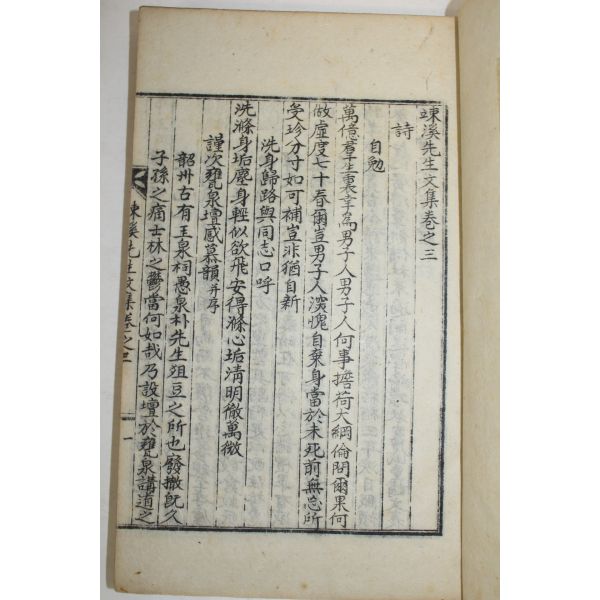 竦溪先生文集卷之三
詩
自勉
萬億羣生裏幸爲男子人男子人何事擔荷大綱倫問爾果何
做虛度七十春爾豈男子人深愧自棄身當於未死前無忘所
受珍分寸如可補豈非猶自新
洗身歸路與同志口呼
洗滌身垢塵身輕似欲飛安得滌心垢淸明徹萬微
謹次甕泉壇感慕韻并序
韶州古有玉泉祠愚泉朴先生俎豆之所也廢撤旣久
子孫之痛士林之鬱當何如哉乃設壇於甕泉講道之
竦溪先生文集卷之三
一